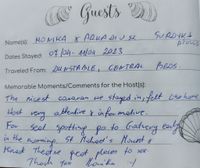 Guests
Name(s): MONIKA & ARKADIUSZ
Dates Stayed: 2023
Traveled From: DUNSTABLE, CENTRAL BEDS.
Memorable Moments/Comments for the Host(s):
The nicest caravan we stayed in, felt like home.
Host very attentive & informative.
For seal spotting go to Godrevy early
in the morning. St Michael's Mount &
Minack Theatre great places to see.
Thank you Monika :-)